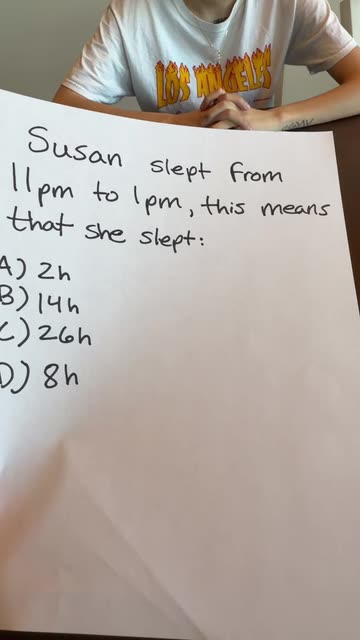 LOS ANGELES
Susan slept from
11pm to 1pm, this means
that she slept:
A) 2h
B) 14h
C) 26h
D) 8h